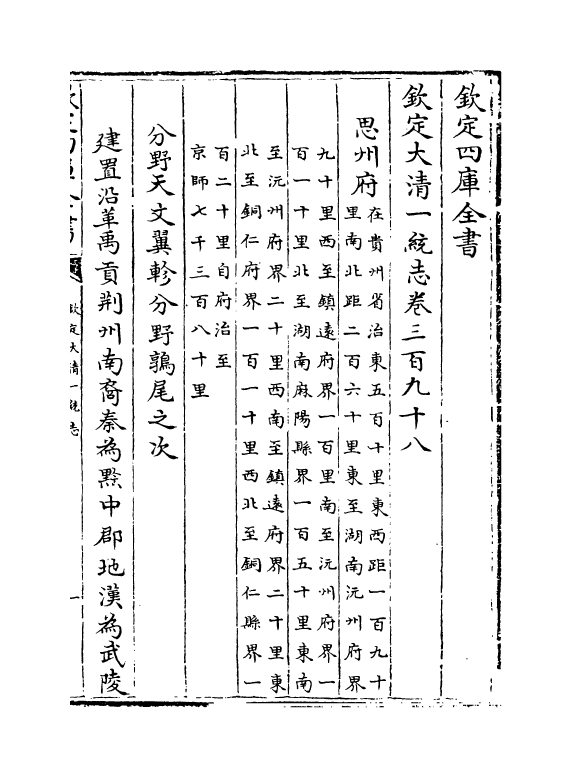 欽定四庫全書
欽定大清一統志卷三百九十八
思州府在貴州省治東五百十里東西距一百九十
里南北距二百六十里東至湖南沅州府界
九十里西至鎮遠府界一百里南至沅州府界一
百一十里北至湖南麻陽縣界一百五十里東南
至沅州府界二十里西南至鎮遠府界二十里東
北至銅仁府界一百一十里西北至銅仁縣界一
百二十里自府治至
京師七千三百八十里
分野天文翼軫分野鶉尾之次
建置沿革禹貢荆州南裔秦為黔中郡地漢為武陵
欽定四庫全書
欽定大清一統志
一